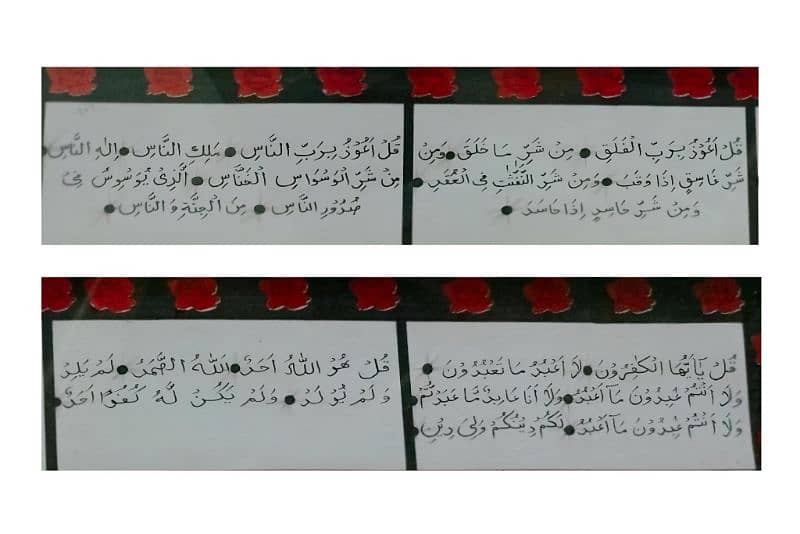 قُلْ اَعُوْذُ بِرَبِّ الْفَلَقِ ● مِنْ شَرِّ مَا خَلَقَ ● وَمِنْ
شَرِّ غَاسِقٍ اِذَا وَقَبَ ● وَمِنْ شَرِّ النَّفّٰثٰتِ فِى الْعُقَدِ ●
وَمِنْ شَرِّ حَاسِدٍ اِذَا حَاسَدَ ●
قُلْ اَعُوْذُ بِرَبِّ النَّاسِ ● مَلِكِ النَّاسِ ● اِلٰهِ النَّاسِ ●
مِنْ شَرِّ الْوَسْوَاسِ الْخَنَّاسِ ● الَّذِىْ يُوَسْوِسُ فِىْ
صُدُوْرِ النَّاسِ ● مِنَ الْجِنَّةِ وَ النَّاسِ ●
قُلْ يٰۤاَيُّهَا الْكٰفِرُوْنَ ● لَا اَعْبُدُ مَا تَعْبُدُوْنَ ●
وَلَا اَنْتُمْ عٰبِدُوْنَ مَاۤ اَعْبُدُ ● وَلَا اَنَا عَابِدٌ مَّا عَبَدْتُّمْ ●
وَلَا اَنْتُمْ عٰبِدُوْنَ مَاۤ اَعْبُدُ ● لَكُمْ دِيْنُكُمْ وَلِىَ دِيْنِ ●
قُلْ هُوَ اللّٰهُ اَحَدٌ ● اَللّٰهُ الصَّمَدُ ● لَمْ يَلِدْ
وَلَمْ يُوْلَدْ ● وَلَمْ يَكُنْ لَّهٗ كُفُوًا اَحَدٌ ●